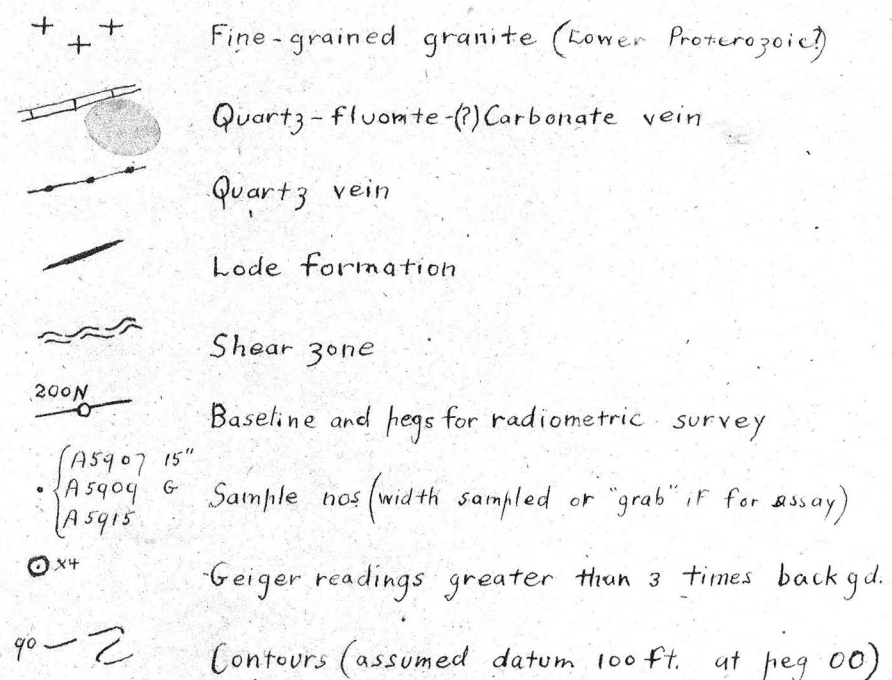 Fine-grained granite (Lower Proterozoic?)
Quartz-fluorite-(?)Carbonate vein
Quartz vein
Lode formation
Shear zone
200N
Baseline and pegs for radiometric survey
A5907 15"
A5909 G
A5915
Sample nos (width sampled or "grab" if for assay)
x4
Geiger readings greater than 3 times backgd.
90
Contours (assumed datum 100 ft. at peg 00)